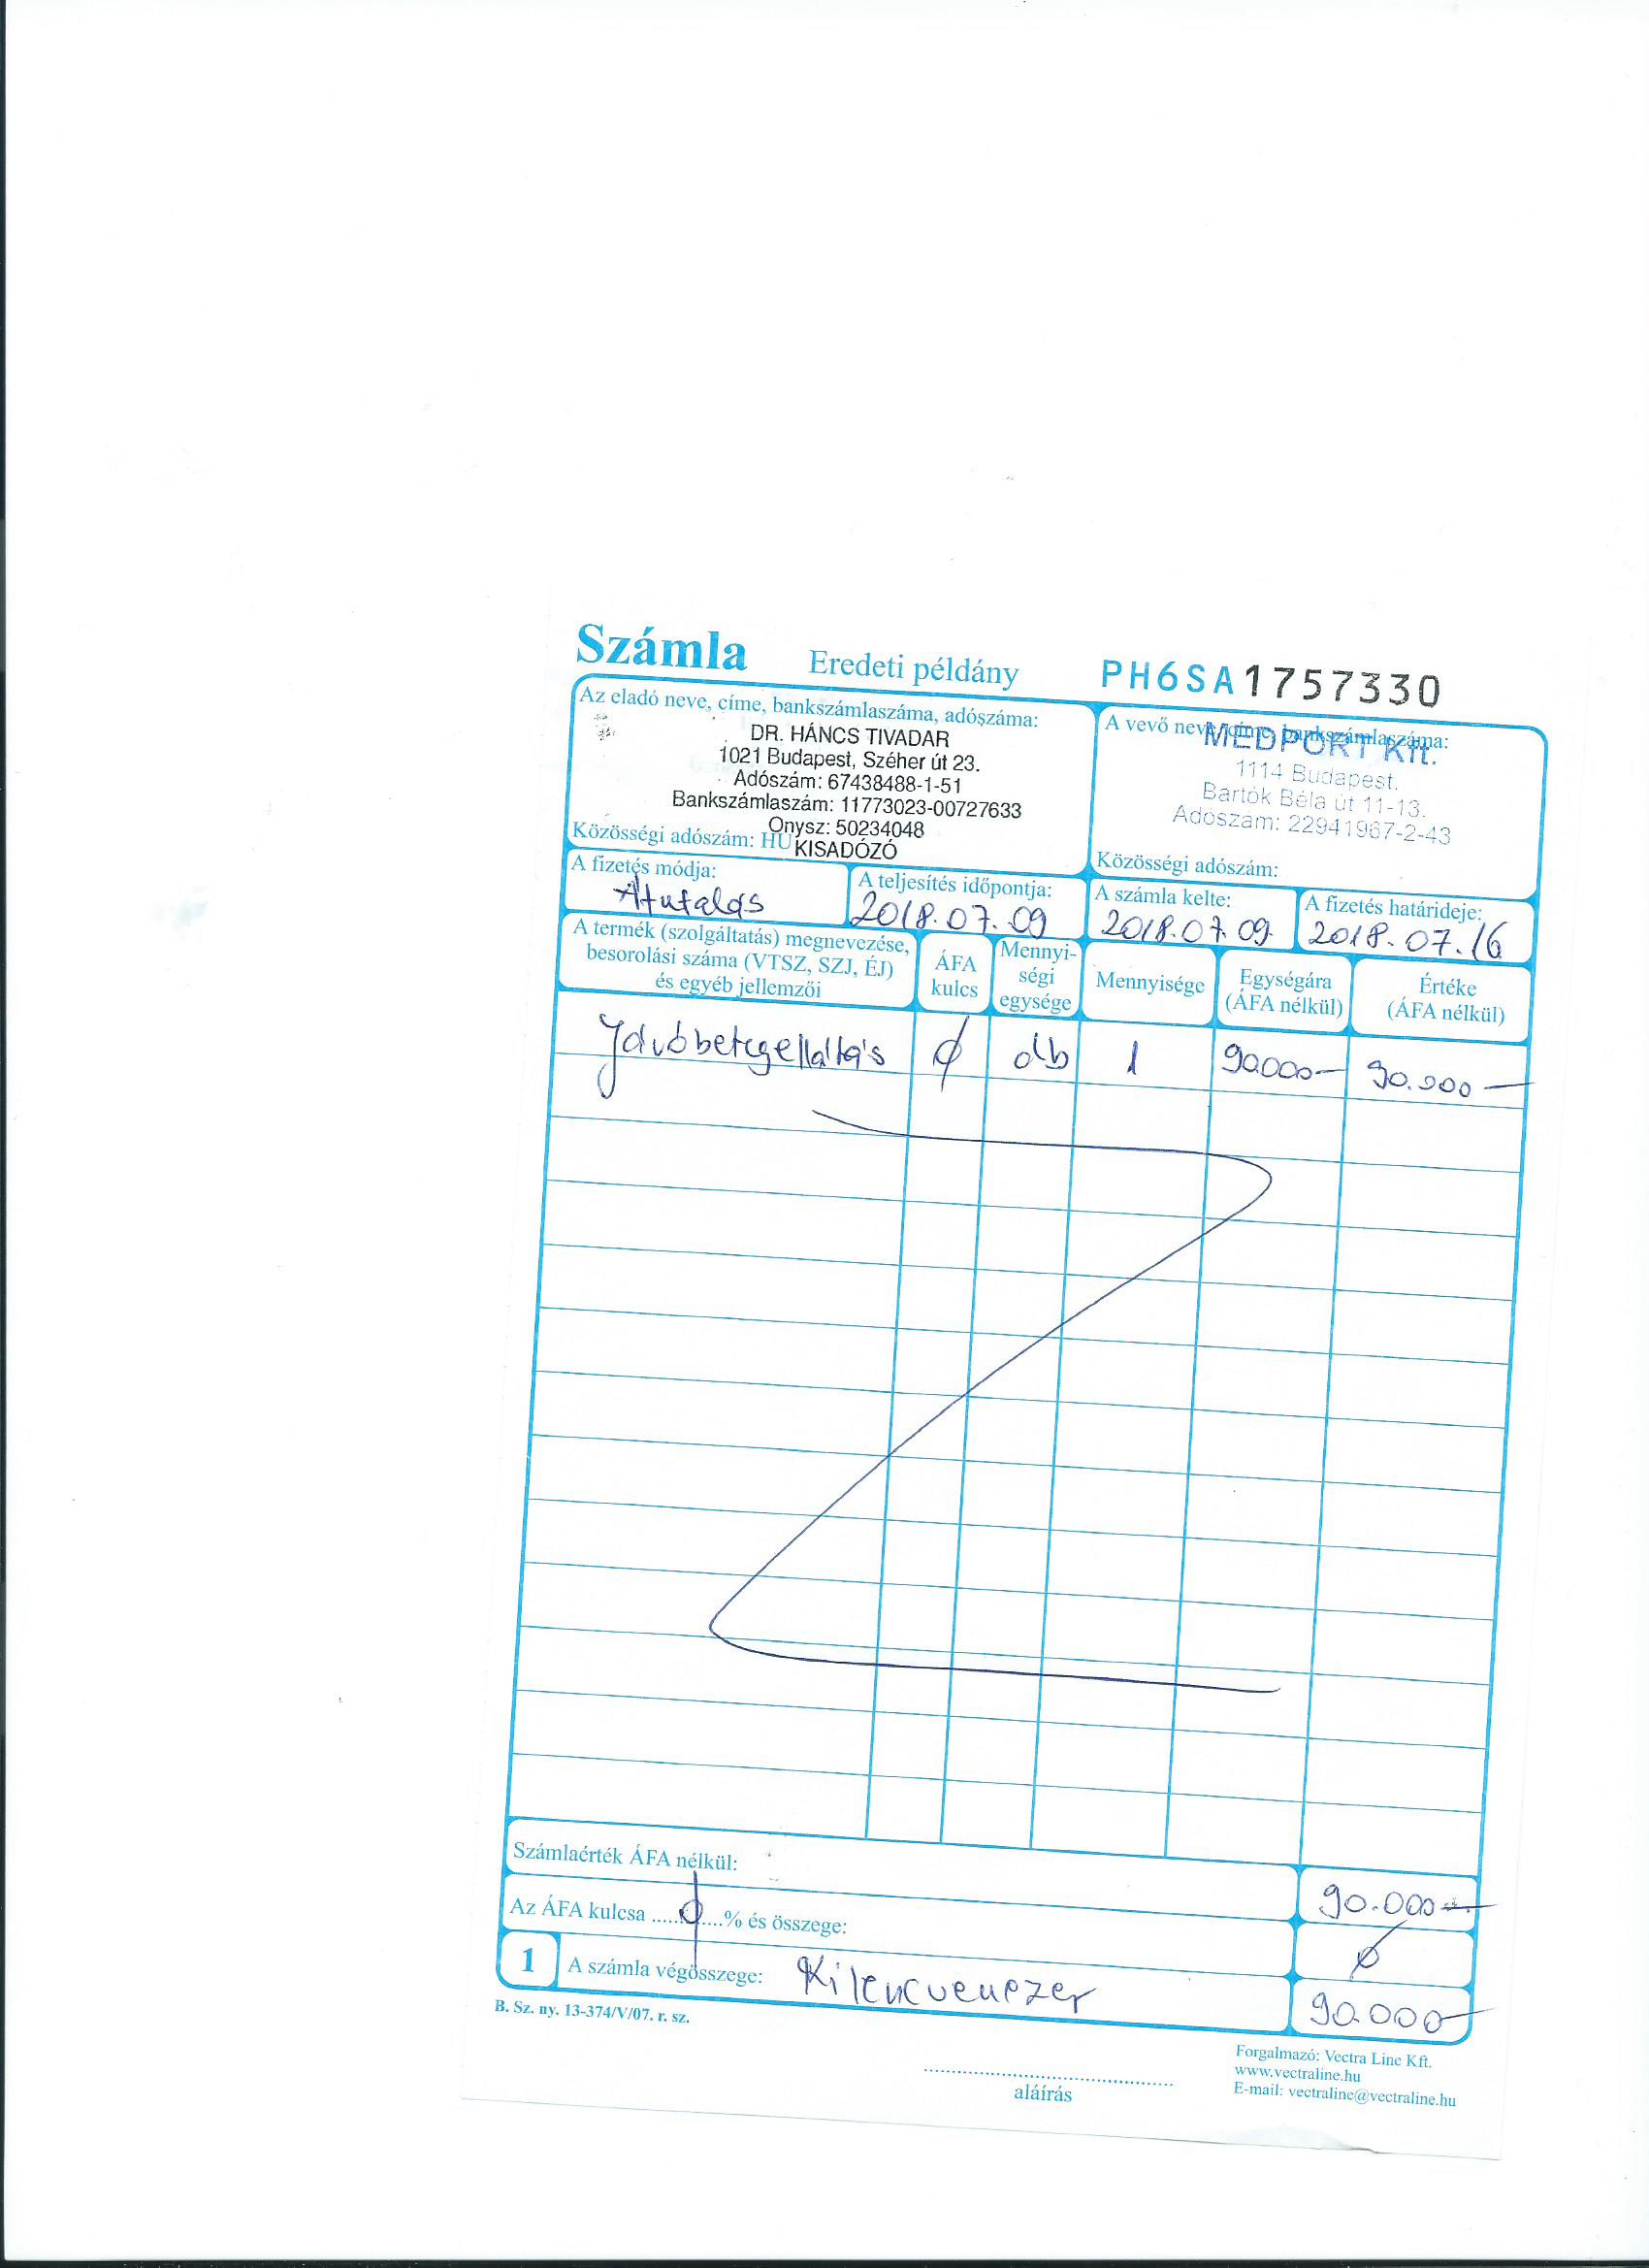 Számla Eredeti példány PH6SA1757330
Az eladó neve, címe, bankszámlaszáma, adószáma:
DR. HÁNCS TIVADAR
1021 Budapest, Széher út 23.
Adószám: 67438488-1-51
Bankszámlaszám: 11773023-00727633
Onysz: 50234048
Közösségi adószám: HU KISADÓZÓ
A vevő neve, címe, bankszámlaszáma:
MEDPORT Kft.
1114 Budapest.
Bartók Béla út 11-13.
Adószám: 22941967-2-43
Közösségi adószám:
A fizetés módja:
Átutalás
A teljesítés időpontja:
2018.07.09
A számla kelte:
2018.07.09.
A fizetés határideje:
2018.07.16
A termék (szolgáltatás) megnevezése,
besorolási száma (VTSZ, SZJ, ÉJ)
és egyéb jellemzői
ÁFA
kulcs
Mennyi-
ségi
egysége
Mennyisége
Egységára
(ÁFA nélkül)
Értéke
(ÁFA nélkül)
Járóbetegellátás 0 db 1 90.000- 90.000-
Számlaérték ÁFA nélkül: 90.000-
Az ÁFA kulcsa ......0....% és összege: 0
1 A számla végösszege: Kilencvenezer 90.000-
B. Sz. ny. 13-374/V/07. r. sz.
aláírás
Forgalmazó: Vectra Line Kft.
www.vectraline.hu
E-mail: vectraline@vectraline.hu